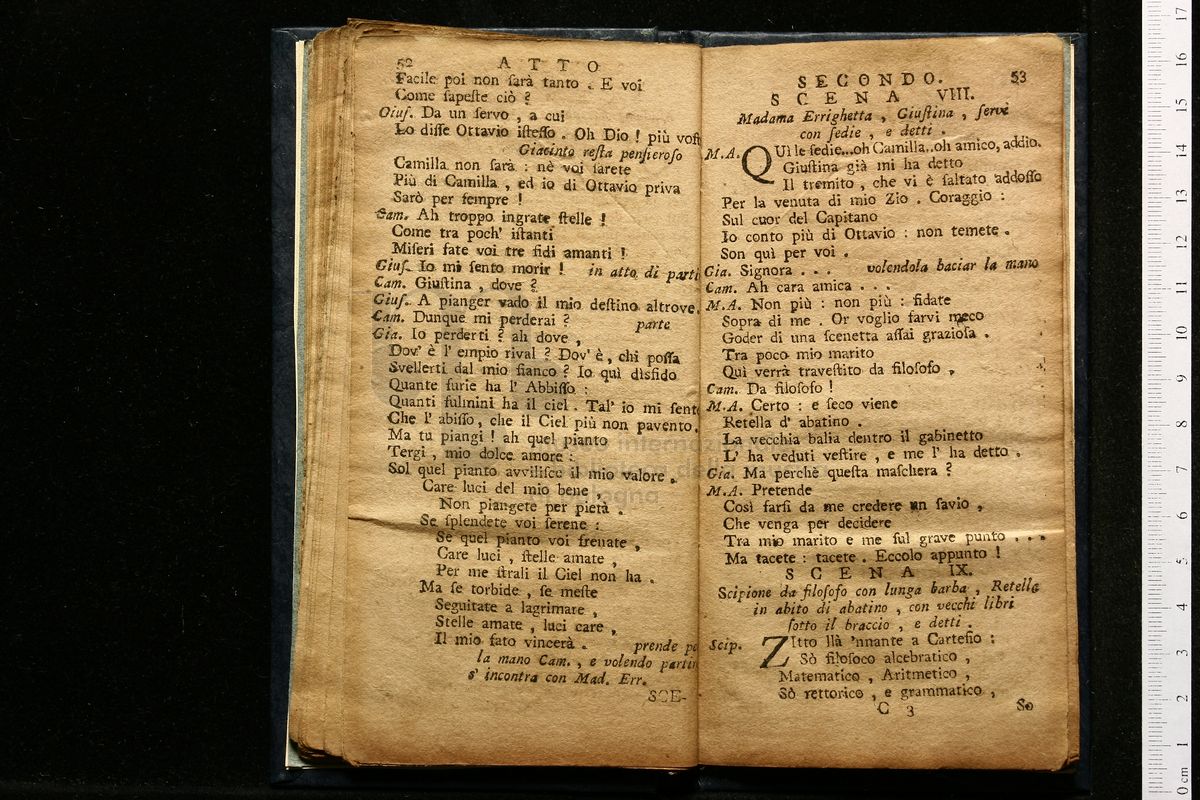 52 ATTO
Facile poi non ſarà tanto . E voi
Come ſapeſte ciò ?
Giuſ. Da un ſervo , a cui
Lo diſſe Ottavio iſteſſo . Oh Dio ! più voſt
Giacinto reſta penſieroſo
Camilla non ſarà : nè voi ſarete
Più di Camilla , ed io di Ottavio priva
Sarò per ſempre !
Cam. Ah troppo ingrate ſtelle !
Come tra poch' iſtanti
Miſeri fate voi tre fidi amanti !
Giuſ. Io mi ſento morir ! in atto di parti
Cam. Giuſtina , dove ?
Giuſ. A pianger vado il mio deſtino altrove.
Cam. Dunque mi perderai ? parte
Gia. Io perderti ? ah dove ,
Dov' è l' empio rival ? Dov' è , chi poſſa
Svellerti dal mio fianco ? Io quì disfido
Quante furie ha l' Abbiſſo :
Quanti fulmini ha il ciel . Tal' io mi ſent
Che l' abiſſo , che il Ciel più non pavento.
Ma tu piangi ! ah quel pianto
Tergi , mio dolce amore :
Sol quel pianto avviliſce il mio valore .
Care luci del mio bene ,
Non piangete per pietà .
Se ſplendete voi ſerene :
Se quel pianto voi frenate ,
Care luci , ſtelle amate ,
Per me ſtrali il Ciel non ha .
Ma ſe torbide , ſe meſte
Seguitate a lagrimare ,
Stelle amate , luci care ,
Il mio fato vincerà . prende pe
la mano Cam. , e volendo partir
s' incontra con Mad. Err.
SCE-
SECONDO. 53
SCENA VIII.
Madama Errighetta , Giuſtina , ſervi
con ſedie , e detti .
M.A. QUì le ſedie...oh Camilla..oh amico, addio.
Giuſtina già mi ha detto
Il tremito , che vi è ſaltato addoſſo
Per la venuta di mio Zio . Coraggio :
Sul cuor del Capitano
Io conto più di Ottavio : non temete .
Son quì per voi .
Gia. Signora . . . volendola baciar la mano
Cam. Ah cara amica . . .
M.A. Non più : non più : fidate
Sopra di me . Or voglio farvi meco
Goder di una ſcenetta aſſai grazioſa .
Tra poco mio marito
Quì verrà traveſtito da filoſofo ,
Cam. Da filoſofo !
M.A. Certo : e ſeco viene
Retella d' abatino .
La vecchia balia dentro il gabinetto
L' ha veduti veſtire , e me l' ha detto .
Gia. Ma perchè queſta maſchera ?
M.A. Pretende
Così farſi da me credere un ſavio ,
Che venga per decidere
Tra mio marito e me ſul grave punto . . .
Ma tacete : tacete . Eccolo appunto !
SCENA IX.
Scipione da filoſofo con lunga barba , Retella
in abito di abatino , con vecchi libri
ſotto il braccio , e detti .
Scip. ZItto llà 'nnante a Carteſio :
Sò filoſoco alcebratico ,
Matematico , Aritmetico ,
Sò rettorico , e grammatico ,
C 3 So